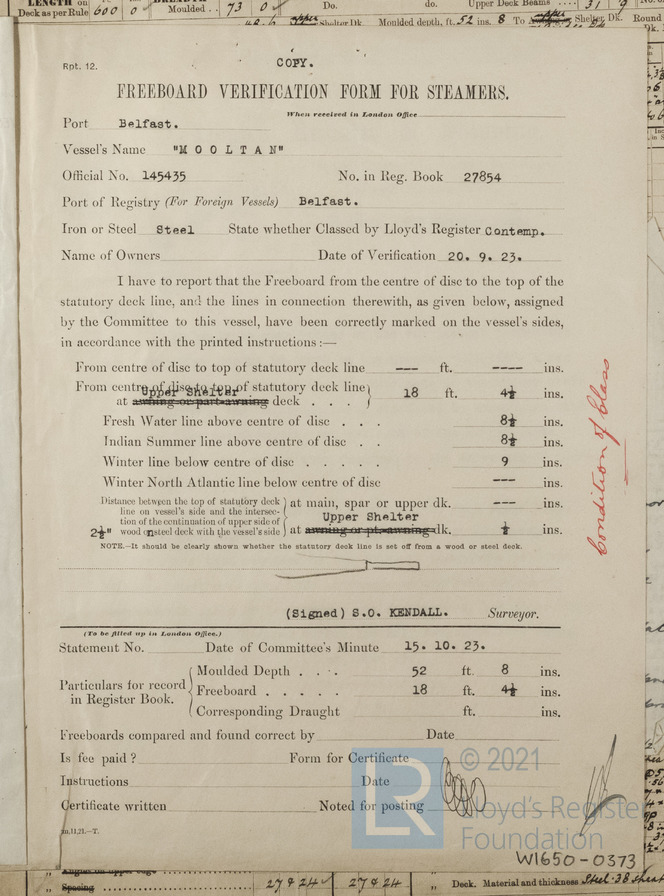 LENGTH on Deck as per Rule 600 0 Moulded . . 73 0 Do. do. Upper Deck Beams . . . 31 9
Shelter Dk. Moulded depth, ft. 52 ins. 8 To upper Shelter Dk. Round
Rpt. 12.
COPY.
FREEBOARD VERIFICATION FORM FOR STEAMERS.
When received in London Office
Port Belfast.
Vessel's Name "MOOLTAN"
Official No. 145435 No. in Reg. Book 27854
Port of Registry (For Foreign Vessels) Belfast.
Iron or Steel Steel State whether Classed by Lloyd's Register Contemp.
Name of Owners Date of Verification 20. 9. 23.
I have to report that the Freeboard from the centre of disc to the top of the
statutory deck line, and the lines in connection therewith, as given below, assigned
by the Committee to this vessel, have been correctly marked on the vessel's sides,
in accordance with the printed instructions :—
From centre of disc to top of statutory deck line --- ft. ---- ins.
From centre of disc to top of statutory deck line
Upper Shelter
at awning or part awning deck . . . 18 ft. 4½ ins.
Fresh Water line above centre of disc . . . 8½ ins.
Indian Summer line above centre of disc . . 8½ ins.
Winter line below centre of disc . . . . . 9 ins.
Winter North Atlantic line below centre of disc --- ins.
Distance between the top of statutory deck
line on vessel's side and the intersec-
tion of the continuation of upper side of
2½" wood on steel deck with the vessel's side
at main, spar or upper dk. --- ins.
Upper Shelter
at awning or pt. awning dk. ½ ins.
NOTE.—It should be clearly shown whether the statutory deck line is set off from a wood or steel deck.
Condition of Class
(Signed) S.O. KENDALL. Surveyor.
(To be filled up in London Office.)
Statement No. Date of Committee's Minute 15. 10. 23.
Particulars for record
in Register Book.
Moulded Depth . . . 52 ft. 8 ins.
Freeboard . . . . . 18 ft. 4½ ins.
Corresponding Draught ft. ins.
Freeboards compared and found correct by Date
Is fee paid ? Form for Certificate
Instructions Date
Certificate written Noted for posting
LR
© 2021
Lloyd's Register
Foundation
m.11,21.—T.
W1650-0373
Spacing 27 & 24 27 & 24 " Deck. Material and thickness Steel .38